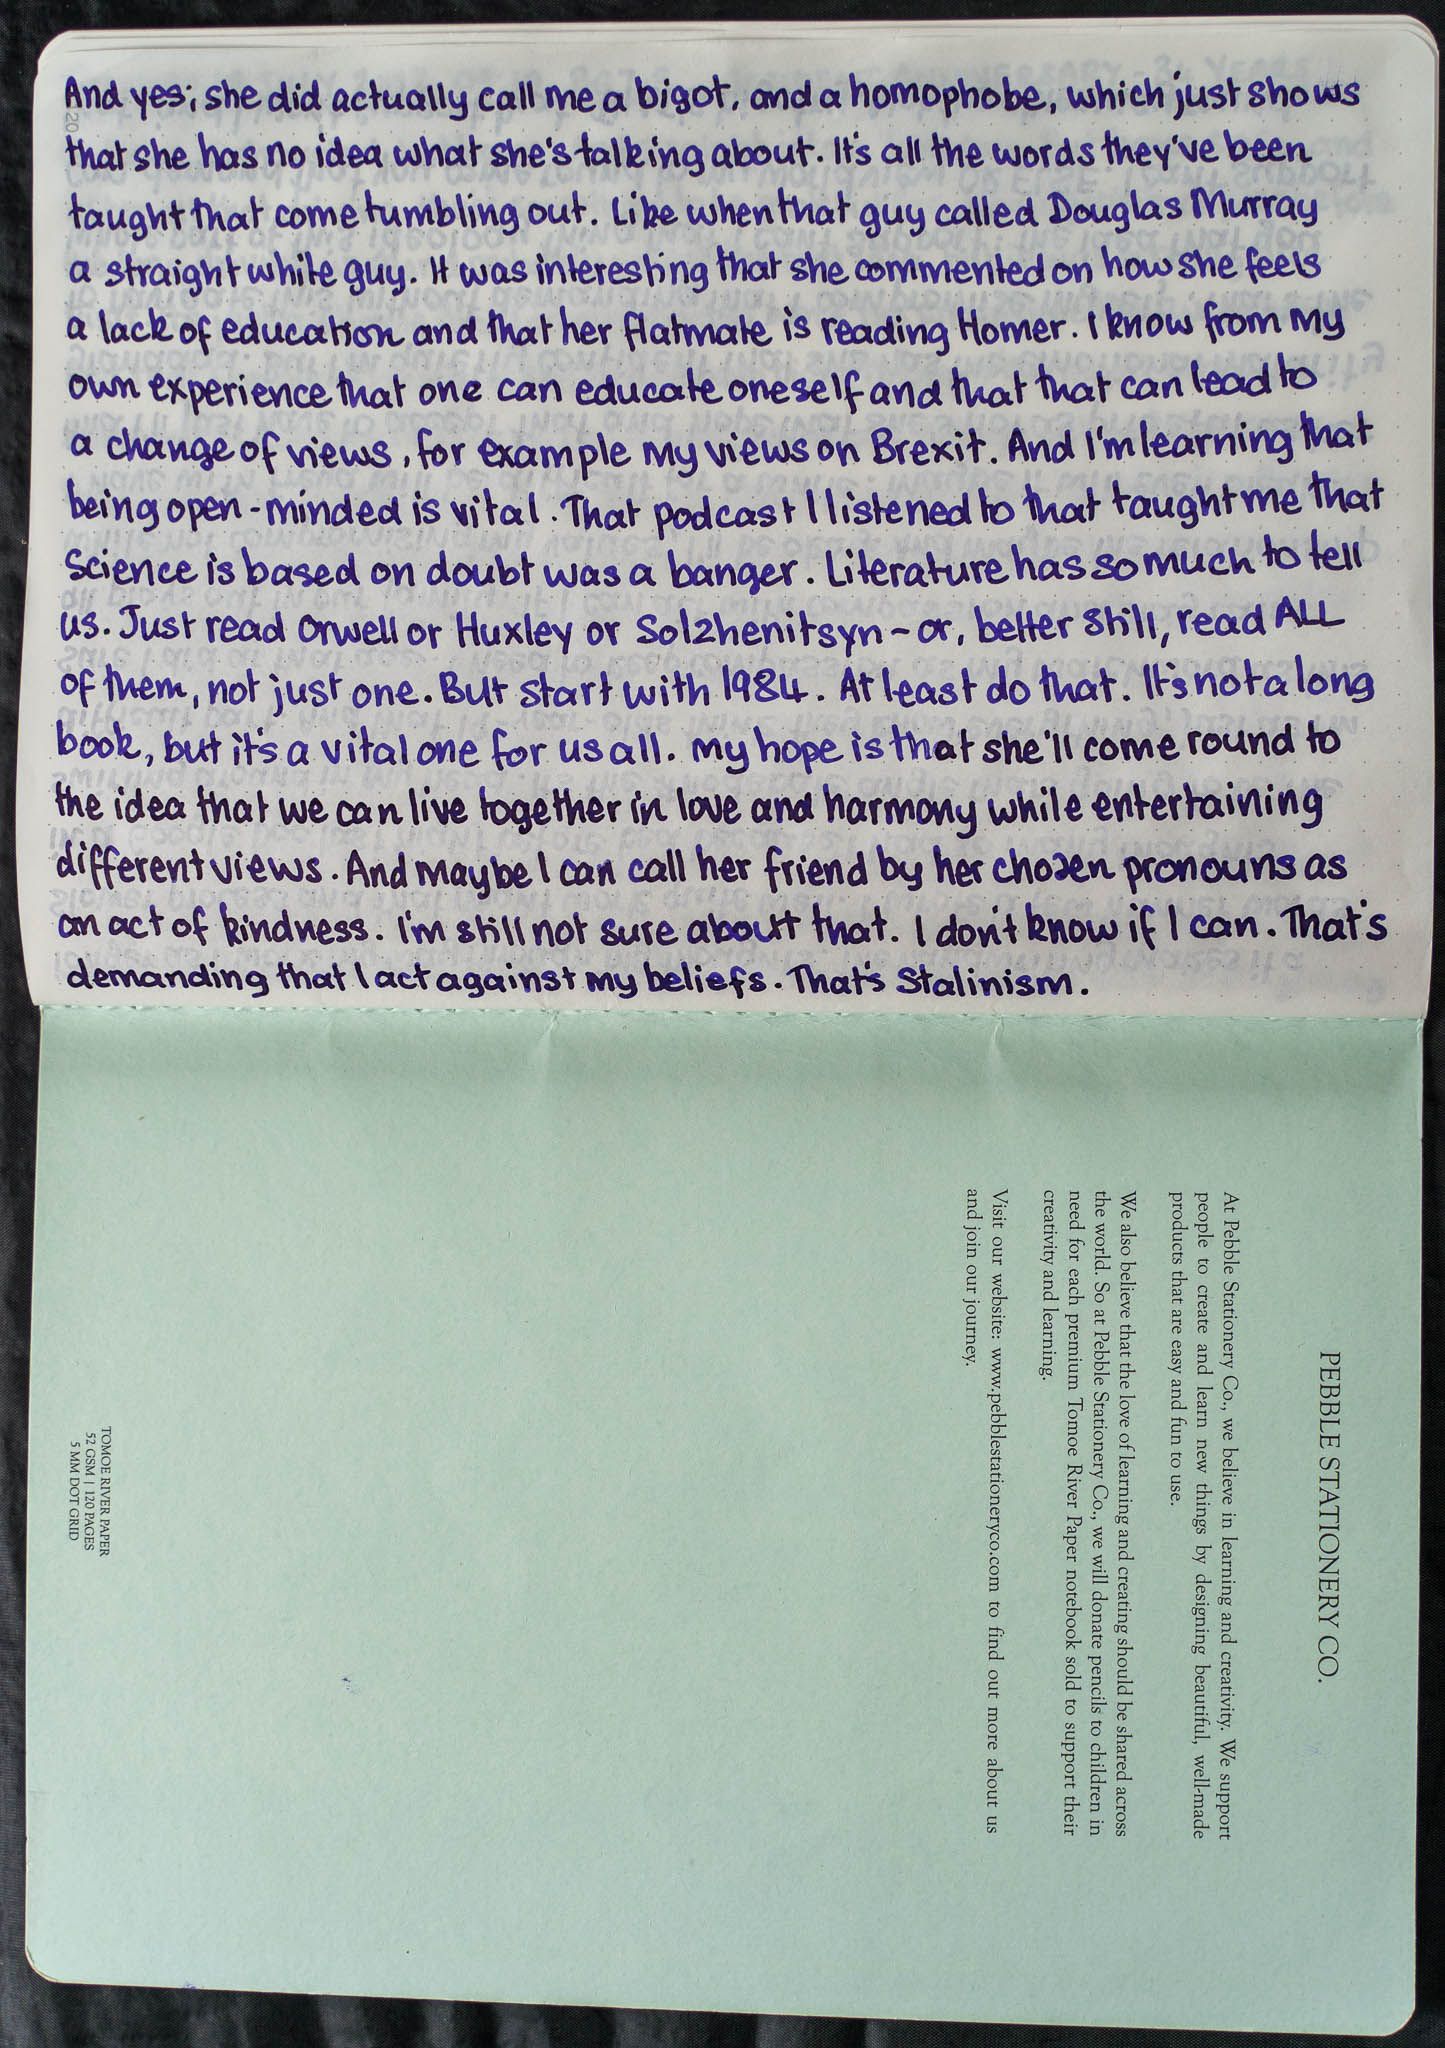 And yes; she did actually call me a bigot, and a homophobe, which just shows
that she has no idea what she's talking about. It's all the words they've been
taught that come tumbling out. Like when that guy called Douglas Murray
a straight white guy. It was interesting that she commented on how she feels
a lack of education and that her flatmate is reading Homer. I know from my
own experience that one can educate oneself and that that can lead to
a change of views, for example my views on Brexit. And I'm learning that
being open-minded is vital. That podcast I listened to that taught me that
Science is based on doubt was a banger. Literature has so much to tell
us. Just read Orwell or Huxley or Solzhenitsyn - or, better still, read ALL
of them, not just one. But start with 1984. At least do that. It's not a long
book, but it's a vital one for us all. My hope is that she'll come round to
the idea that we can live together in love and harmony while entertaining
different views. And maybe I can call her friend by her chosen pronouns as
an act of kindness. I'm still not sure about that. I don't know if I can. That's
demanding that I act against my beliefs. That's Stalinism.
PEBBLE STATIONERY CO.
At Pebble Stationery Co., we believe in learning and creativity. We support
people to create and learn new things by designing beautiful, well-made
products that are easy and fun to use.
We also believe that the love of learning and creating should be shared across
the world. So at Pebble Stationery Co., we will donate pencils to children in
need for each premium Tomoe River Paper notebook sold to support their
creativity and learning.
Visit our website: www.pebblestationeryco.com to find out more about us
and join our journey.
TOMOE RIVER PAPER
52 GSM | 120 PAGES
5 MM DOT GRID